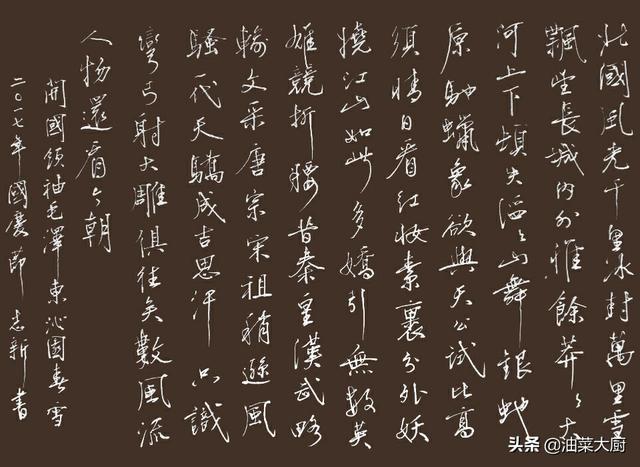 北國風光千里冰封萬里雪
飄望長城內外惟餘莽々大
河上下頓失滔々山舞銀蛇
原馳蠟象欲與天公試比高
須晴日看紅妝素裹分外妖
嬈江山如此多嬌引無數英
雄競折腰昔秦皇漢武略
輸文采唐宗宋祖稍遜風
騷一代天驕成吉思汗只識
彎弓射大雕俱往矣數風流
人物還看今朝
開國領袖毛澤東沁園春雪
二〇一七年國慶節志新書
头条@油菜大厨